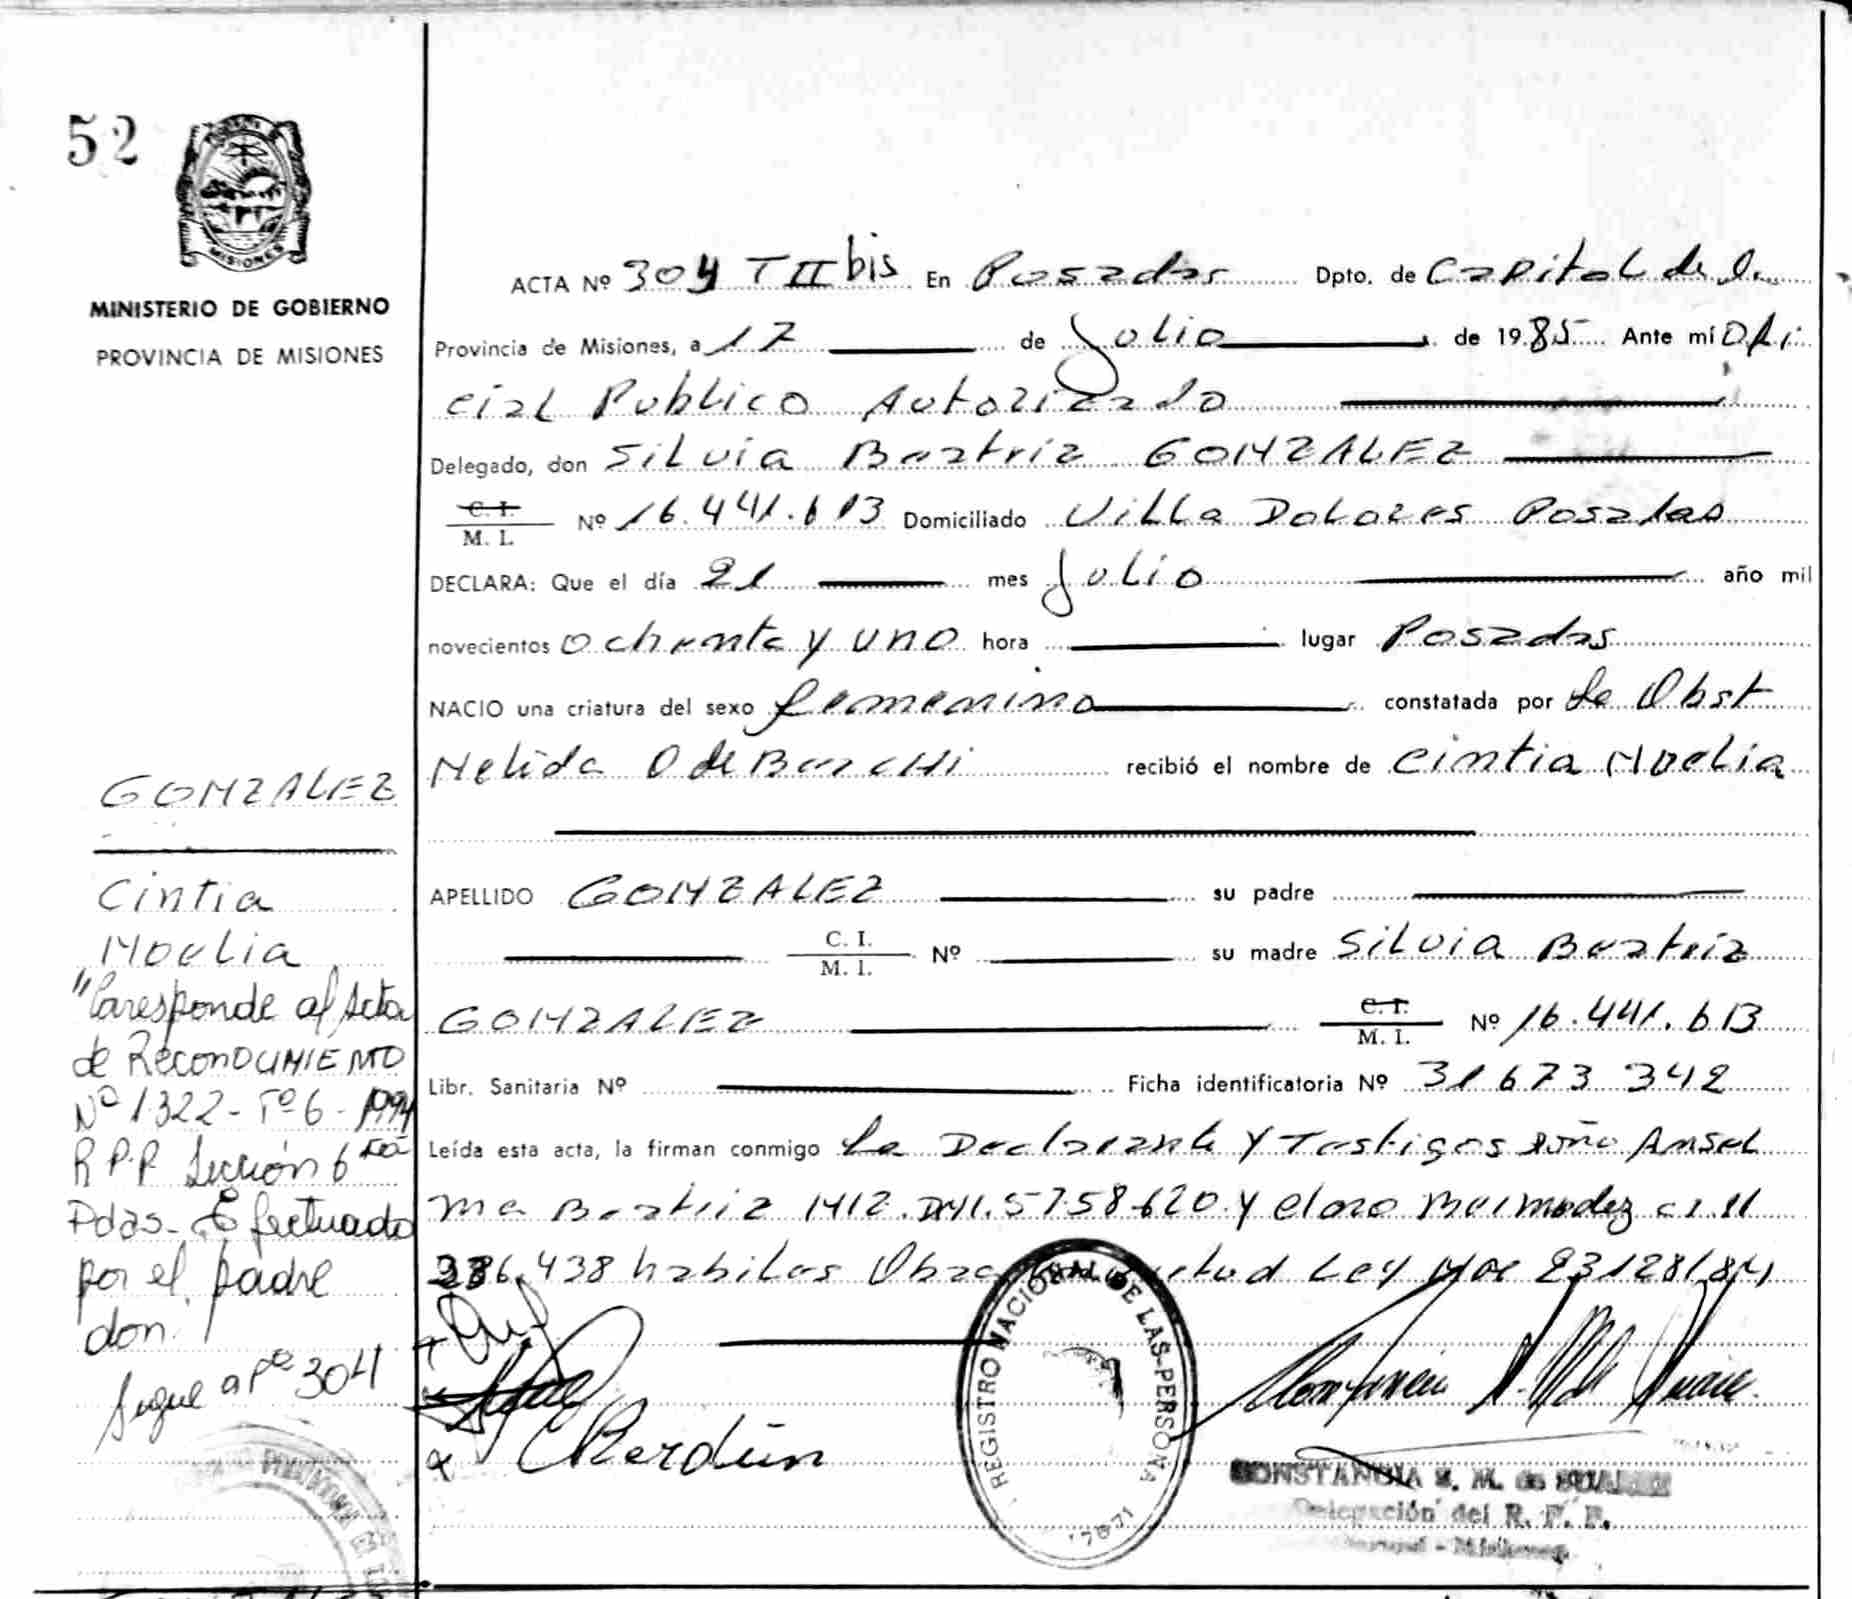 52
MISIONES
MINISTERIO DE GOBIERNO
PROVINCIA DE MISIONES
ACTA Nº 304 T II bis En Posadas Dpto. de Capital de la
Provincia de Misiones, a 17 de Julio de 1985 Ante mí Ofi
cial Publico Autorizado
Delegado, don Silvia Beatriz GONZALEZ
C. I.
M. I. Nº 16.441.613 Domiciliado Villa Dolores Posadas
DECLARA: Que el día 21 mes Julio año mil
novecientos ochenta y uno hora lugar Posadas
NACIO una criatura del sexo femenino constatada por la Obst
Nelida O de recibió el nombre de Cintia Noelia
APELLIDO GONZALEZ su padre
C. I.
M. I. Nº su madre Silvia Beatriz
GONZALEZ C. I.
M. I. Nº 16.441.613
Libr. Sanitaria Nº Ficha identificatoria Nº 31673342
Leída esta acta, la firman conmigo la Declarante y Testigos doña Ansel
ma Beatriz 5758620 y Bermudez
438 habiles Ley 23128/84
GONZALEZ
Cintia
Noelia
"Corresponde al Acta
de Reconocimiento
Nº 1322 - Tº 6 - 1994
R.P.P. Sección 6
Pdas. Efectuado
por el padre
don.
Sigue a Fº 304
REGISTRO NACIONAL DE LAS PERSONA
CONSTANCIA S. M. de SUAREZ
Delegación del R. P. P.